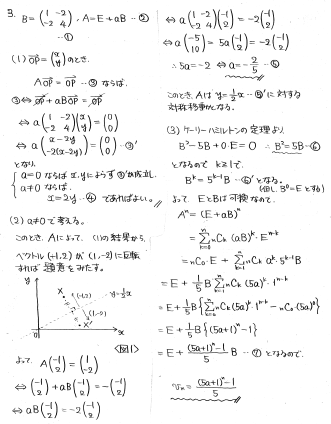 3. B = (1 -2 / -2 4), A = E + aB … ②
…①
(1) OP = (x / y) のとき、
AOP = OP … ③ ならば、
③ ⇔ OP + aBOP = OP
⇔ a(1 -2 / -2 4)(x / y) = (0 / 0)
⇔ a(x-2y / -2(x-2y)) = (0 / 0) … ③'
となり、
a=0 ならば x, yによらず ③'が成立し
a≠0 ならば、
x=2y … ④ であればよい。
(2) a≠0 で考える。
このとき、Aによって、(1)の結果から、
ベクトル (-1,2) が (1,-2) に
すれば題意をみたす。
y
X
(-1,2)
y=½x
(1,-2)
X'
0
x
<図1>
よって、A(-1 / 2) = (1 / -2)
⇔ (-1 / 2) + aB(-1 / 2) = -(-1 / 2)
⇔ aB(-1 / 2) = -2(-1 / 2)
⇔ a(1 -2 / -2 4)(-1 / 2) = -2(-1 / 2)
⇔ a(-5 / 10) = 5a(-1 / 2) = -2(-1 / 2)
∴ 5a = -2 ⇔ a = -2/5 … ⑤
このとき、Aは y=½x … ⑤' に対する
対称移動となる。
(3) ケーリーハミルトンの定理より
B²-5B+0·E=0 ∴ B²=5B … ⑥
となるので k≧1で、
B^k = 5^(k-1) B … ⑥' となる。
(但し、B⁰=E とする)
よって、EとBは可換なので、
A^n = (E+aB)^n
= Σ[k=0→n] nCk (aB)^k · E^(n-k)
= nC0·E + Σ[k=1→n] nCk a^k·5^(k-1) B
= E + 1/5 B Σ[k=1→n] nCk (5a)^k · 1^(n-k)
= E + 1/5 B { Σ[k=0→n] nCk (5a)^k · 1^(n-k) - nC0 (5a)^0 }
= E + 1/5 B { (5a+1)^n - 1 }
= E + (5a+1)^n - 1 / 5 B … ⑦ となるので、
= (5a+1)^n - 1 / 5